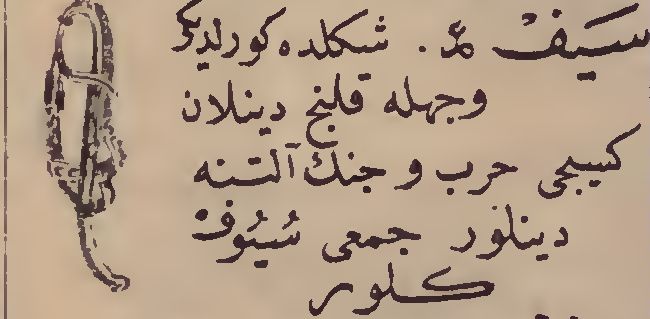 سَيَفْ مذ. شكلده كورلديكى
وجهله قلنج دينلان
كسيجى حرب و جنك آلتنه
دينلور جمعى سُيُوف
كلور